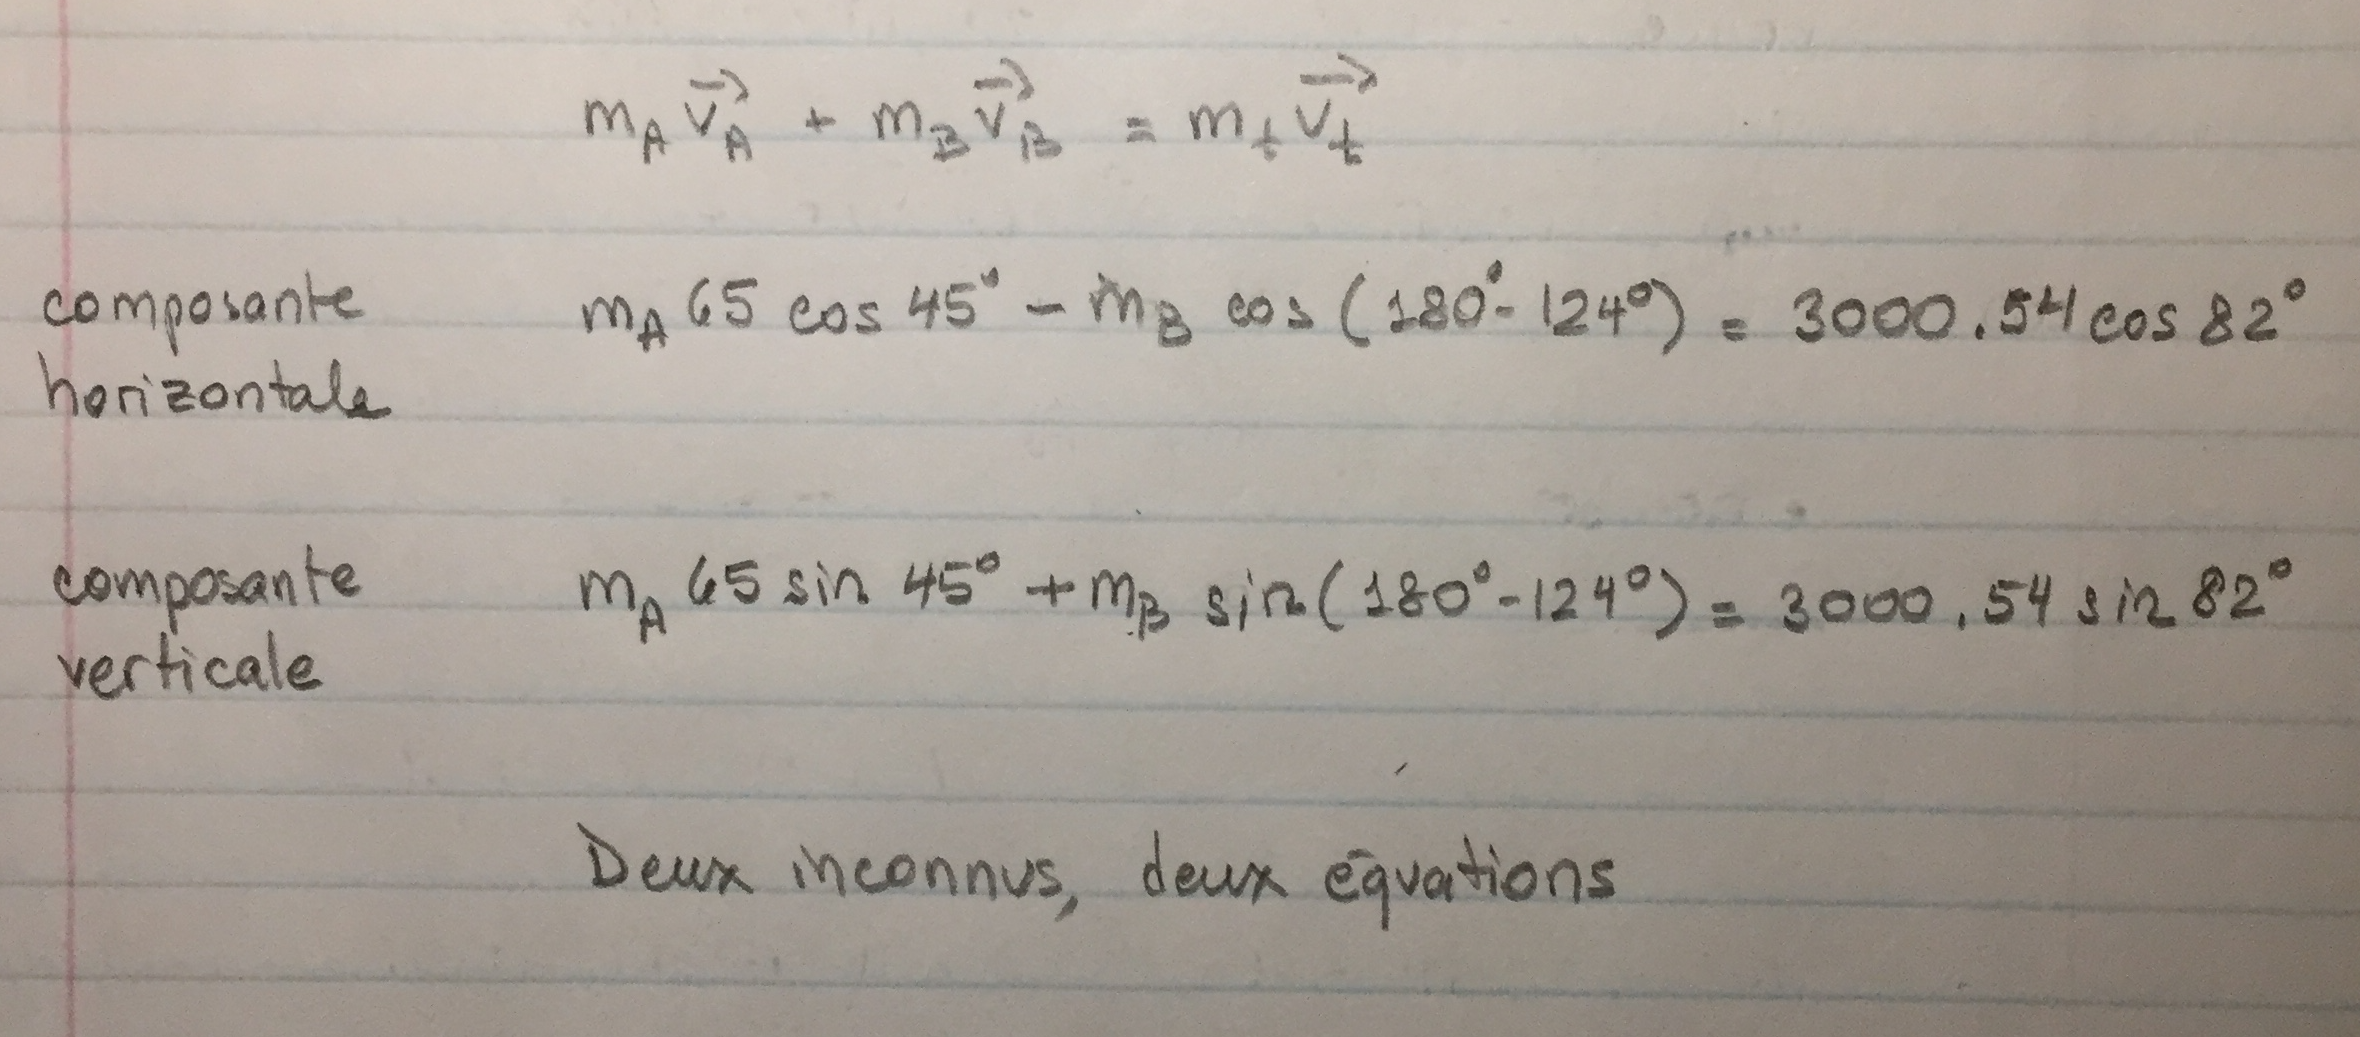 m_A v⃗_A + m_B v⃗_B = m_t v⃗_t
composante m_A 65 cos 45° - m_B cos (180° - 124°) = 3000 . 54 cos 82°
horizontale
composante m_A 65 sin 45° + m_B sin (180° - 124°) = 3000 . 54 sin 82°
verticale
Deux inconnus, deux équations